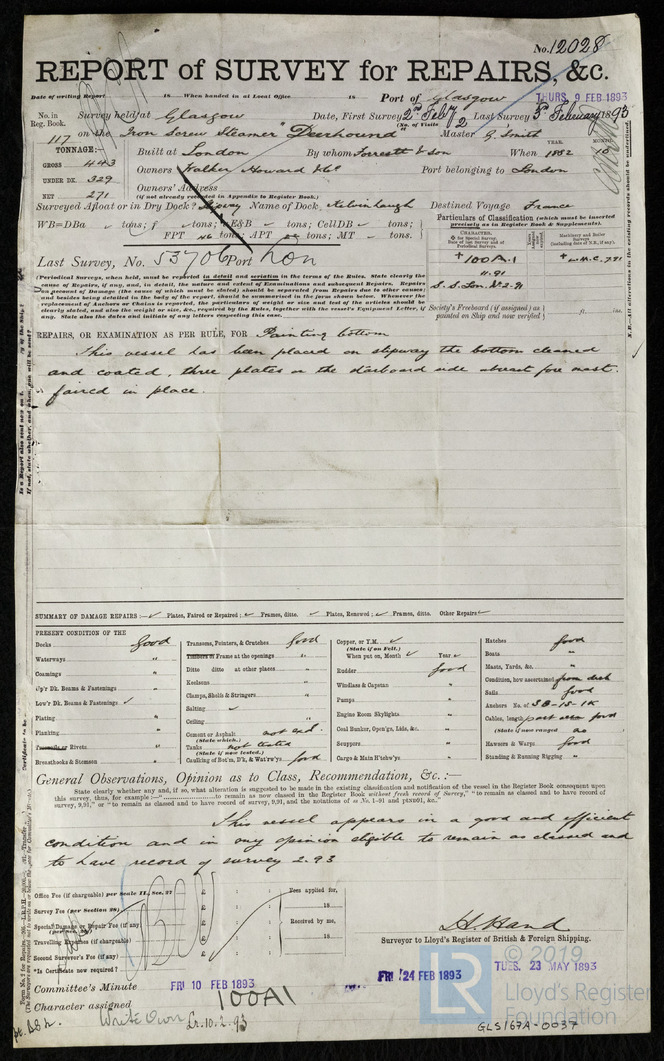 No. 12028
REPORT of SURVEY for REPAIRS, &c.
Date of writing Report 18 When handed in at Local Office 18 Port of Glasgow THURS. 9 FEB 1893
No. in Reg. Book. Survey held at Glasgow Date, First Survey 2nd Feby Last Survey 3rd February 1893
(No. of Visits 2)
117 on the Iron Screw Steamer "Deerhound" Master G. Smith
TONNAGE:— Built at London By whom Forrestt & Son When 1882 10
YEAR. MONTH.
GROSS 443 Owners Walker Howard & Co
UNDER DK. 329 Owners' Address Port belonging to London
NET 271 (if not already recorded in Appendix to Register Book.)
Surveyed Afloat or in Dry Dock? Slipway Name of Dock, Kelvinhaugh Destined Voyage France
WB=DBa tons; f tons; E&B tons; CellDB tons;
FPT no tons; APT no tons; MT tons.
Particulars of Classification (which must be inserted precisely as in Register Book & Supplements).
CHARACTER,
+100A.1
11.91
S.S. Lon. No 2-91
Last Survey, No. 53706 Port Lon
(Periodical Surveys, when held, must be reported in detail and seriatim in the terms of the Rules. State clearly the
cause of Repairs, if any, and, in detail, the nature and extent of Examinations and subsequent Repairs. Repairs
on account of Damage (the cause of which must be stated) should be separated from Repairs due to other causes;
and besides being detailed in the body of the report, should be summarised in the form shewn below. Whenever the
replacement of Anchors or Chains is reported, the particulars of weight or size and test of the articles should be
clearly stated, and also the weight or size, &c., required by the Rules, together with the vessel's Equipment Letter, if
any. State also the dates and initials of any letters respecting this case.)
Society's Freeboard (if assigned) as painted on Ship and now verified ft. ins.
N.B.—All alterations in the existing records should be underlined.
REPAIRS, OR EXAMINATION AS PER RULE, FOR Painting bottom
This vessel has been placed on slipway the bottom cleaned
and coated, three plates on the starboard side abreast fore mast
faired in place.
SUMMARY OF DAMAGE REPAIRS:— Plates, Faired or Repaired; Frames, ditto. Plates, Renewed; Frames, ditto. Other Repairs
PRESENT CONDITION OF THE
Decks Good
Waterways "
Coamings "
Up'r Dk. Beams & Fastenings "
Low'r Dk. Beams & Fastenings
Plating "
Planking "
Treenails or Rivets "
Breasthooks & Stemson "
Transoms, Pointers, & Crutches Good
Timbers or Frame at the openings "
Ditto ditto at other places "
Keelsons "
Clamps, Shelfs & Stringers "
Salting
Ceiling "
Cement or Asphalt not exd.
(State which.)
Tanks not tested
(State if now tested.)
Caulking of Bot'm, D'k, & Wat'rw'ys good
Copper, or Y.M.
(State if on Felt.)
When put on, Month Year
Rudder good
Windlass & Capstan "
Pumps "
Engine Room Skylights "
Coal Bunker, Open'gs, Lids, &c. "
Scuppers "
Cargo & Main H'tchw'ys "
Hatches good
Boats "
Masts, Yards, &c. "
Condition, how ascertained from deck
Sails good
Anchors No. of 3B-1S-1K
Cables, length part seen good
(State if now ranged no
Hawsers & Warps Good
Standing & Running Rigging "
General Observations, Opinion as to Class, Recommendation, &c. :—
State clearly whether any, and if so, what alteration is suggested to be made in the existing classification and notification of the vessel in the Register Book consequent upon
this survey, thus, for example :—" to remain as now classed in the Register Book without fresh record of Survey," "to remain as classed and to have record of
survey, 9,91," or "to remain as classed and to have record of survey, 9,91, and the notations of
This vessel appears in a good and efficient
condition and in my opinion eligible to remain as classed and
to have record of survey 2.93
Office Fee (if chargeable) per Scale II., Sec. 27 £ : :
Survey Fee (per Section 28) £ : :
Special Damage or Repair Fee (if any) £ : :
Travelling Expenses (if chargeable) £ : :
Second Surveyor's Fee (if any) £ : :
*Is Certificate now required?
Fees applied for,
18
Received by me,
18
H. Hand
Surveyor to Lloyd's Register of British & Foreign Shipping.
Committee's Minute FRI 10 FEB 1893 FRI 24 FEB 1893 TUES. 23 MAY 1893
Character assigned 100A1
Write Ownr Lr. 10.2.93
© 2019
LR
Lloyd's Register
Foundation
GLS/67A-0037